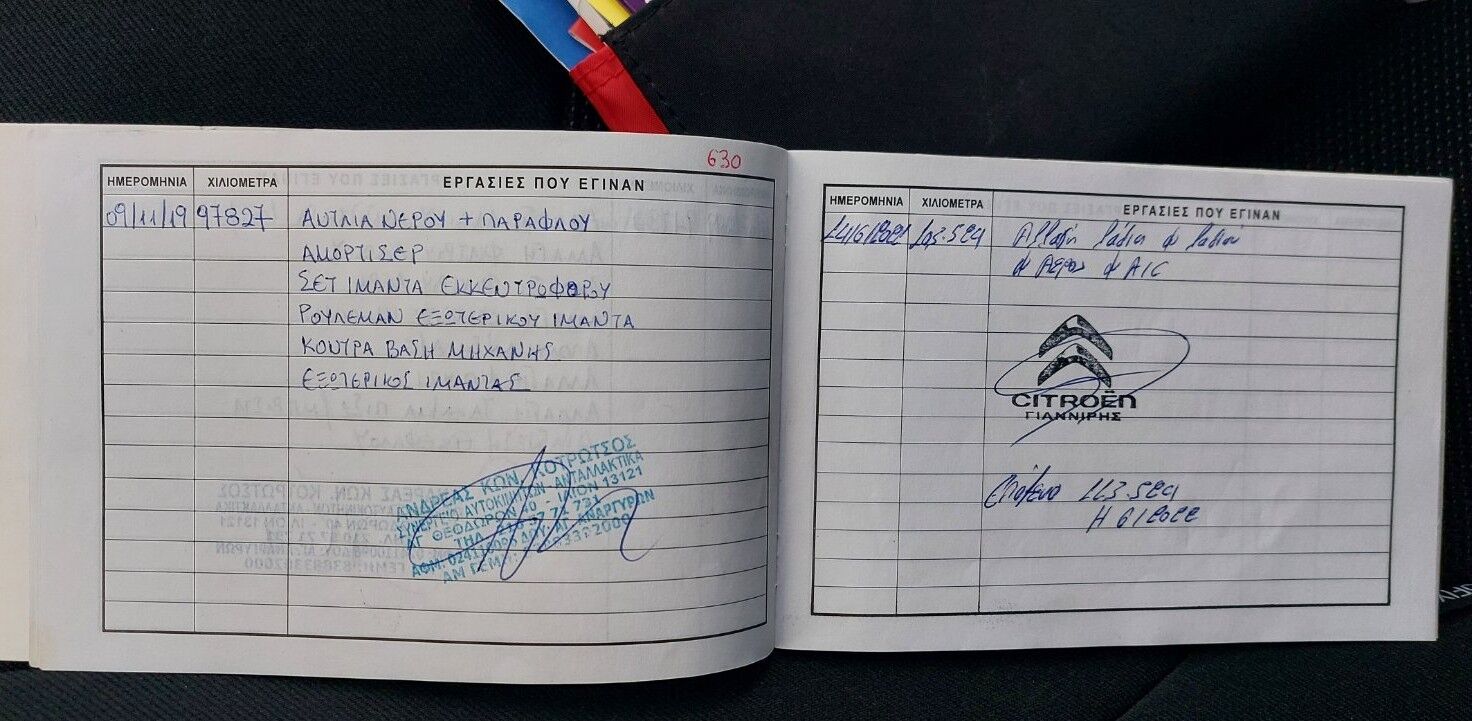 630
ΗΜΕΡΟΜΗΝΙΑ ΧΙΛΙΟΜΕΤΡΑ ΕΡΓΑΣΙΕΣ ΠΟΥ ΕΓΙΝΑΝ
09/11/19 97827 ΑΝΤΛΙΑ ΝΕΡΟΥ + ΠΑΡΑΦΛΟΥ
ΑΜΟΡΤΙΣΕΡ
ΣΕΤ ΙΜΑΝΤΑ ΕΚΚΕΝΤΡΟΦΟΡΟΥ
ΡΟΥΛΕΜΑΝ ΕΞΩΤΕΡΙΚΟΥ ΙΜΑΝΤΑ
ΚΟΥΤΡΑ ΒΑΣΗ ΜΗΧΑΝΗΣ
ΕΞΩΤΕΡΙΚΟΣ ΙΜΑΝΤΑΣ
ΑΝΔΡΕΑΣ ΚΩΝ. ΚΟΤΡΩΤΣΟΣ
ΣΥΝΕΡΓΕΙΟ ΑΥΤΟΚΙΝΗΤΩΝ ΑΝΤΑΛΛΑΚΤΙΚΑ
ΑΓ. ΘΕΟΔΩΡΩΝ 40 - ΙΛΙΟΝ 13121
ΤΗΛ. 210 57 71 731
ΑΦΜ: ΔΟΥ: ΑΓ. ΑΝΑΡΓΥΡΩΝ
ΑΜ ΓΕΜΗ:
ΗΜΕΡΟΜΗΝΙΑ ΧΙΛΙΟΜΕΤΡΑ ΕΡΓΑΣΙΕΣ ΠΟΥ ΕΓΙΝΑΝ
Αλλαγή
A/C
CITROËN
ΓΙΑΝΝΙΡΗΣ
Επόμενο
Η 6/2022